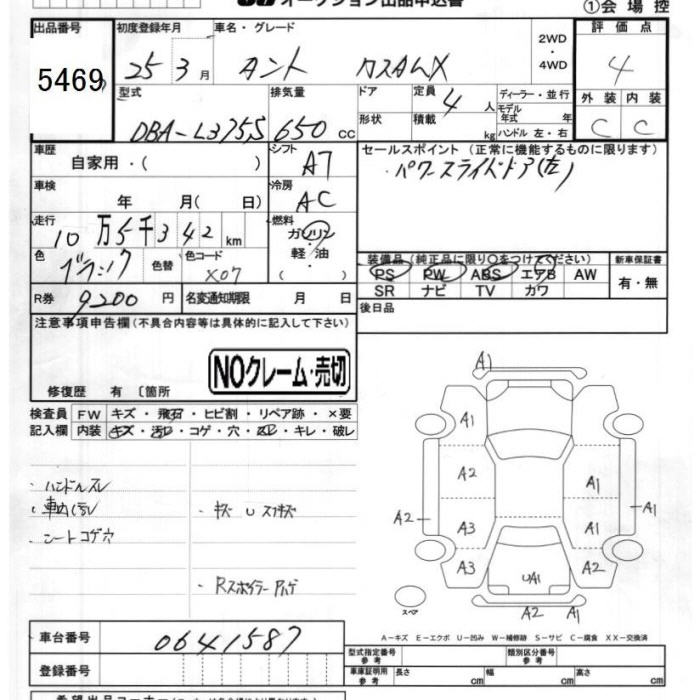 オークション出品申込書
①会場控
出品番号 初度登録年月 車名・グレード 2WD ・ 4WD 評価点
5469 25年 3月 タント カスタムX 4
型式 排気量 ドア 定員 4人 ディーラー・並行 外装 内装
DBA-L375S 650cc 形状 積載 kg モデル年式 年 ハンドル 左・右 C C
車歴 自家用・( ) シフト AT セールスポイント (正常に機能するものに限ります)
・パワースライドドア(左)
車検 年 月( 日) 冷房 AC
走行 10万5千342km 燃料 ガソリン・軽油・( )
色 ブラック 色替 色コード X07
装備品(純正品に限り○をつけてください) 新車保証書
PS PW ABS エアB AW 有・無
SR ナビ TV カワ
R券 9200円 名変通知期限 月 日 後日品
注意事項申告欄(不具合内容等は具体的に記入して下さい)
NOクレーム・売切
修復歴 有 〔箇所
検査員 FW キズ・飛石・ヒビ割・リペア跡・×要
記入欄 内装 キズ・汚れ・コゲ・穴・スレ・キレ・破レ
・ハンドルスレ
・車内汚レ
・シートコゲ穴
・キズ U スリキズ
・Rスポイラー ハゲ
A1
A1
A2 A1
A2 A1
A3 A1
A3 A2
UA1
A2 A1
スペア
A-キズ E-エクボ U-凹み W-補修跡 S-サビ C-腐食 XX-交換済
車台番号 0641587
型式指定番号 参考 類別区分番号 参考
登録番号
車庫証明用 参考 長さ cm 幅 cm 高さ cm
希望出品コーナー